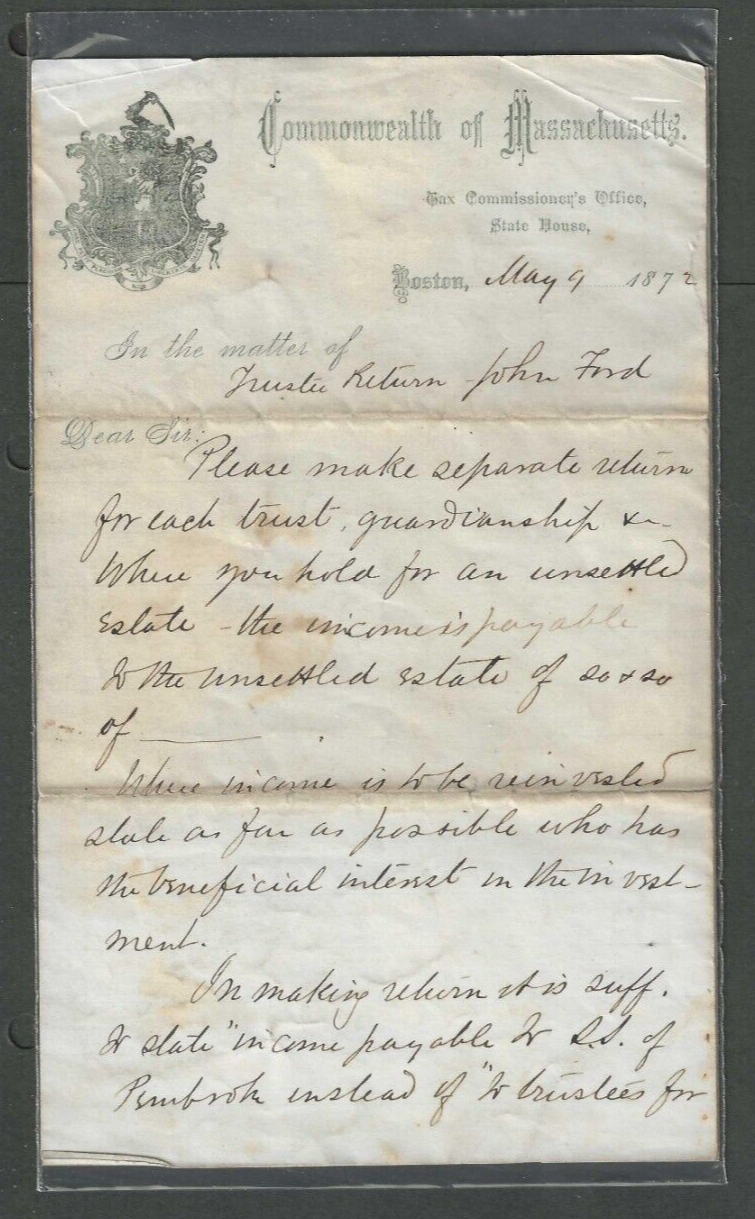 Commonwealth of Massachusetts.
Tax Commissioner's Office,
State House,
Boston, May 9 1872
In the matter of
Trustee Return John Ford
Dear Sir:
Please make separate return
for each trust, guardianship &c.
Where you hold for an unsettled
Estate - the income is payable
to the unsettled estate of so & so
of
Where income is to be reinvested
state as far as possible who has
the beneficial interest in the invest-
ment.
In making return it is suff.
to state "income payable to S.S. of
Pembroke instead of "to trustees for